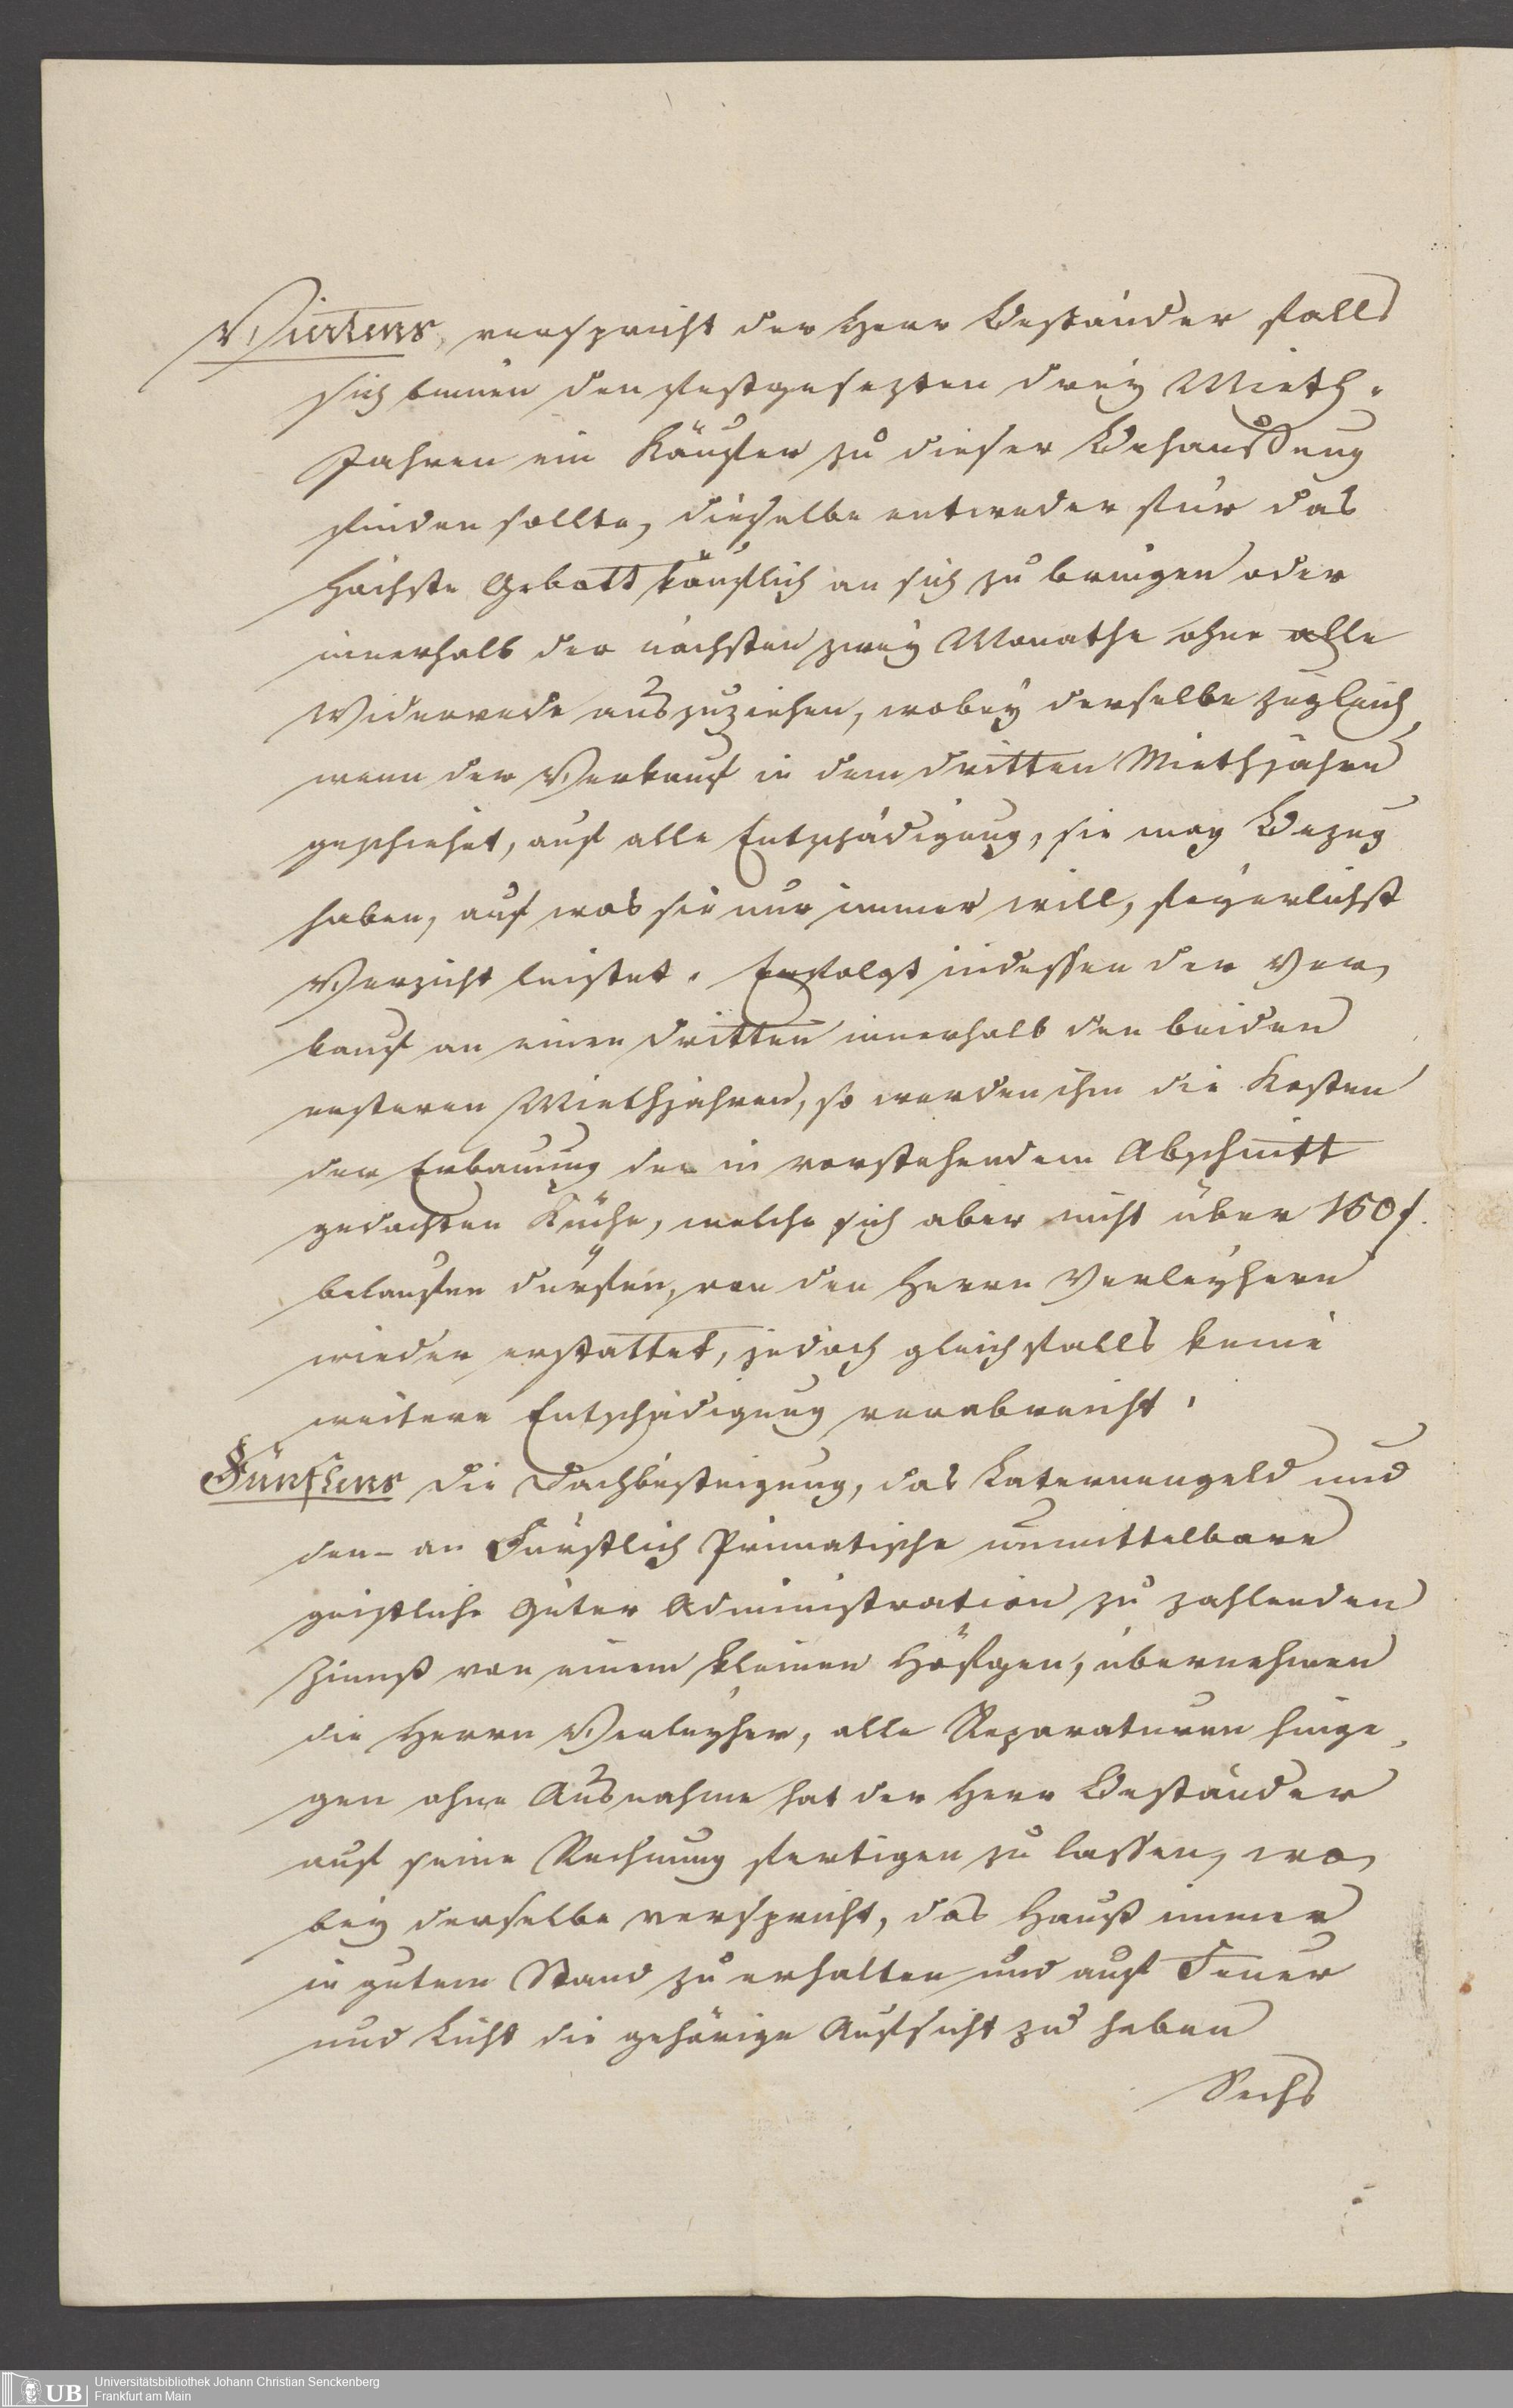 Viertens, verspricht der Herr Beständer falls
sich binnen den festgesezten drey Mieth-
Jahren ein Käufer zu dieser Behaußung
finden sollte, dieselbe entweder für das
höchste Gebott käuflich an sich zu bringen oder
innerhalb der nächsten zwey Monathe ohne alle
Widerrede auszuziehen, wobey derselbe zugleich,
wenn der Verkauf in dem dritten Miethjahre
geschiehet, auf alle Entschädigung, sie mag Bezug
haben, auf was sie nur immer will, feyerlichst
Verzicht leistet. Erfolgt indessen der Ver-
kauf an einen dritten innerhalb den beiden
ersteren Miethjahren, so werden ihm die Kosten
der Erbauung der in vorstehendem Abschnitt
gedachten Küche, welche sich aber nicht über 150 f.
belaufen dürfen, von den Herrn Verleyhern
wieder erstattet, jedoch gleichfalls keine
weitere Entschädigung verabreicht.
Fünftens die Dachbesteigung, das Laternengeld und
den- an Fürstlich Primatische unmittelbare
geistliche Güter Administration zu zahlenden
Zinnß von einem kleinen Höfgen, übernehmen
die Herrn Verleyher, alle Reparaturen hinge-
gen ohne Ausnahme hat der Herr Beständer
auf seine Rechnung fertigen zu lassen, wo-
bey derselbe verspricht, das Hauß immer
in gutem Stand zu erhalten und auf Feuer
und Licht die gehörige Aufsicht zu haben
Sechs
UB
Universitätsbibliothek Johann Christian Senckenberg
Frankfurt am Main